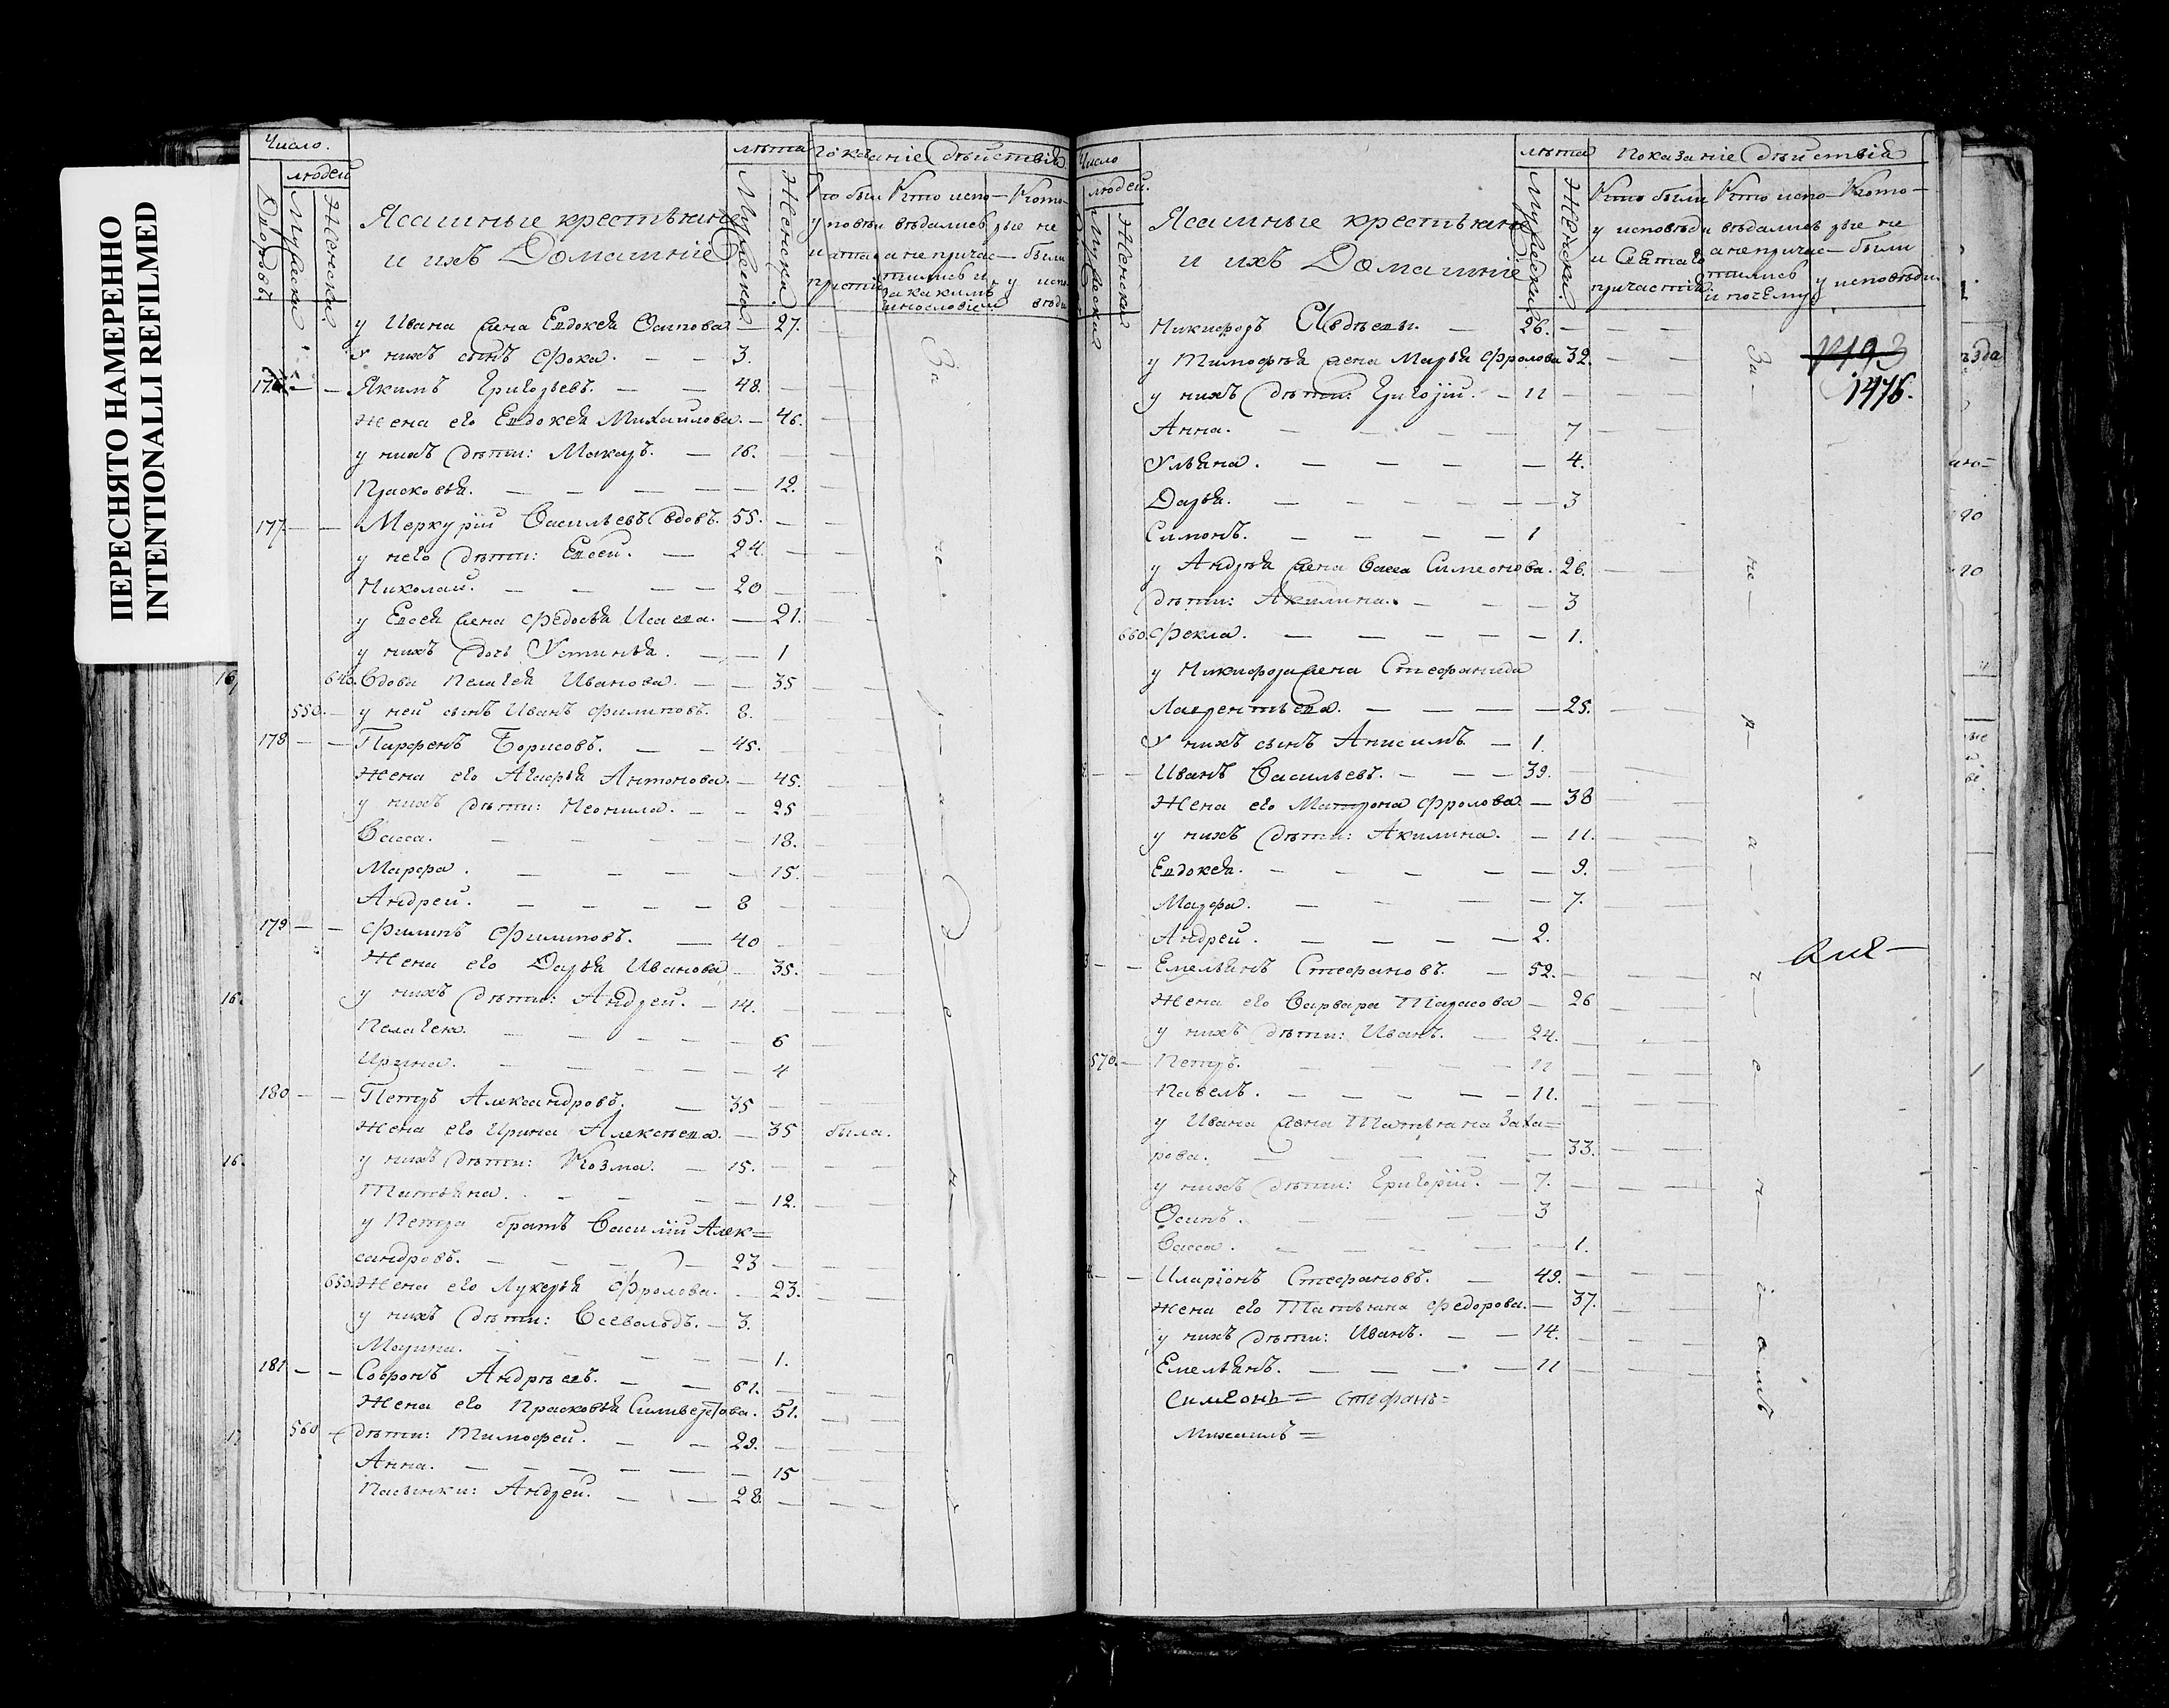 ПЕРЕСНЯТО НАМЕРЕННО
INTENTIONALLI REFILMED
Число.
людей
Дворовъ.
Мужеска
Женска
Ясашные крестьяне
и ихъ Домашніе
лѣта
Мужеска
Женска.
показаніе дѣйствія
Кто испо— Кото—
вѣдались рые не
а не причас— были
тились и у испо
за какимъ вѣди
винословіем
у Ивана жена Евдокея Осипова — 27.
У нихъ сынъ Фока. — — 3.
176. — — Якимъ Григорьевъ. — — 48.
Жена его Евдокея Михаилова. — 46.
у нихъ дѣти: Макаръ. — 16.
Прасковья. — — — — 12.
177. — — Меркурій Васильевъ вдовъ. 55.
у него дѣти: Евсей. — 24.
Николай. — — — — 20
у Евсея жена Федосья Исаева. — 21.
у нихъ дочь Устинья. — — 1
640. Вдова Пелагея Иванова. — — 35
550. — у ней сынъ Иванъ Филиповъ. 8.
178 — — Парфенъ Борисовъ. — — 45.
Жена его Агафья Антонова. — 45.
у нихъ дѣти: Неонила. — — 25
Васса. — — — — 18.
Марфа. — — — — 15.
Андрей. — — — — 8
179 — — Филипъ Филиповъ. — 40
Жена его Дарья Иванова — 35.
у нихъ дѣти: Андрей. — 14.
Пелагея. — — — — 6
Ирина. — — — — 4
180 — — Петръ Александровъ. — 35
Жена его Ирина Алексѣева. — 35 была.
у нихъ дѣти: Козма. — 15.
Татьяна. — — — — 12.
у Петра братъ Василій Алек=
сандровъ. — — — — 23
650. Жена его Лукерья Фролова. — 23.
у нихъ дѣти: Всеволодъ. — 3.
— — — — 1.
181 — — Софронъ Андрѣевъ. — — 61.
Жена его Прасковья Силивестрова. 51.
560 — дѣти: Тимофей. — — 29.
Анна. — — — — — 15
Пасынки: Андрей. — — 28.
Число
людей.
Мужеска
Женска
Ясашные крестьяне
и ихъ Домашніе
лѣта
Мужеска
Женска.
показаніе дѣйствія
Кто были Кто испо— Кото—
у исповѣди вѣдались рые не
и Святаго а не причас— были
причастія. тились у исповѣди.
и почему
Никифоръ Авдѣевъ. — 26.
у Тимофѣя жена Марья Фролова 32.
1493
у нихъ дѣти: Григорій. — 11
1476.
Анна. — — — — 7
Ульяна. — — — — 4.
Дарья. — — — — 3
Симонъ. — — — — 1
у Андрѣя жена Васса Симеонова. 26.
дѣти: Акилина. — — — 3
660. Фекла. — — — — — 1.
у Никифора жена Стефанида
Лаврентьева. — — — — 25.
У нихъ сынъ Анисимъ. — 1.
Иванъ Васильевъ. — — — 39.
Жена его Матрона Фролова. — 38
у нихъ дѣти: Акилина. — 11.
Евдокея. — — — — — 9.
Марфа. — — — — 7.
Андрей. — — — — 2.
Емельянъ Стефановъ. — 52.
Жена его Варвара Тарасова — 26
у нихъ дѣти: Иванъ. — 24.
570. — Петръ. — — — — 11
Павелъ. — — — — — 11.
у Ивана жена Татьяна Заха=
рова. — — — — — 33.
у нихъ дѣти: Григорій. — 7.
Осипъ. — — — 3
Васса. — — — — — 1.
Иларіонъ Стефановъ. — 49.
Жена его Татьяна Федорова. — 37.
у нихъ дѣти: Иванъ. — — 14.
Емельянъ. — — — — 11
Симеонъ = Стефанъ =
Михаилъ =